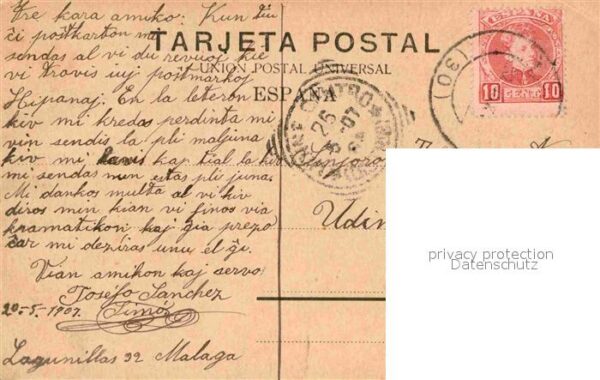 Tre kara amiko: Kun tiu
ĉi postkarton mi
sendas al vi du revuoj kie
vi trovis iuj postmarkoj
Hipanaj. En la leteron
kiv mi kredas perdinta mi
vin sendis la pli maljuna
kiv mi havis kaj tial la kiv
mi sendas nun estas pli juna.
Mi dankos multa al vi kiv
diros min kian vi finos via
gramatikon kaj ĝia prezo
ĉar mi deziras unu el ĝi.
Vian amikon kaj servo
Josefo Sanchez
Simó
20-5-1907.
Lagunillas 32 Malaga
TARJETA POSTAL
UNION POSTAL UNIVERSAL
ESPAÑA
ESPAÑA
10 CENT. 10
(30)
26
07
Udin
privacy protection
Datenschutz